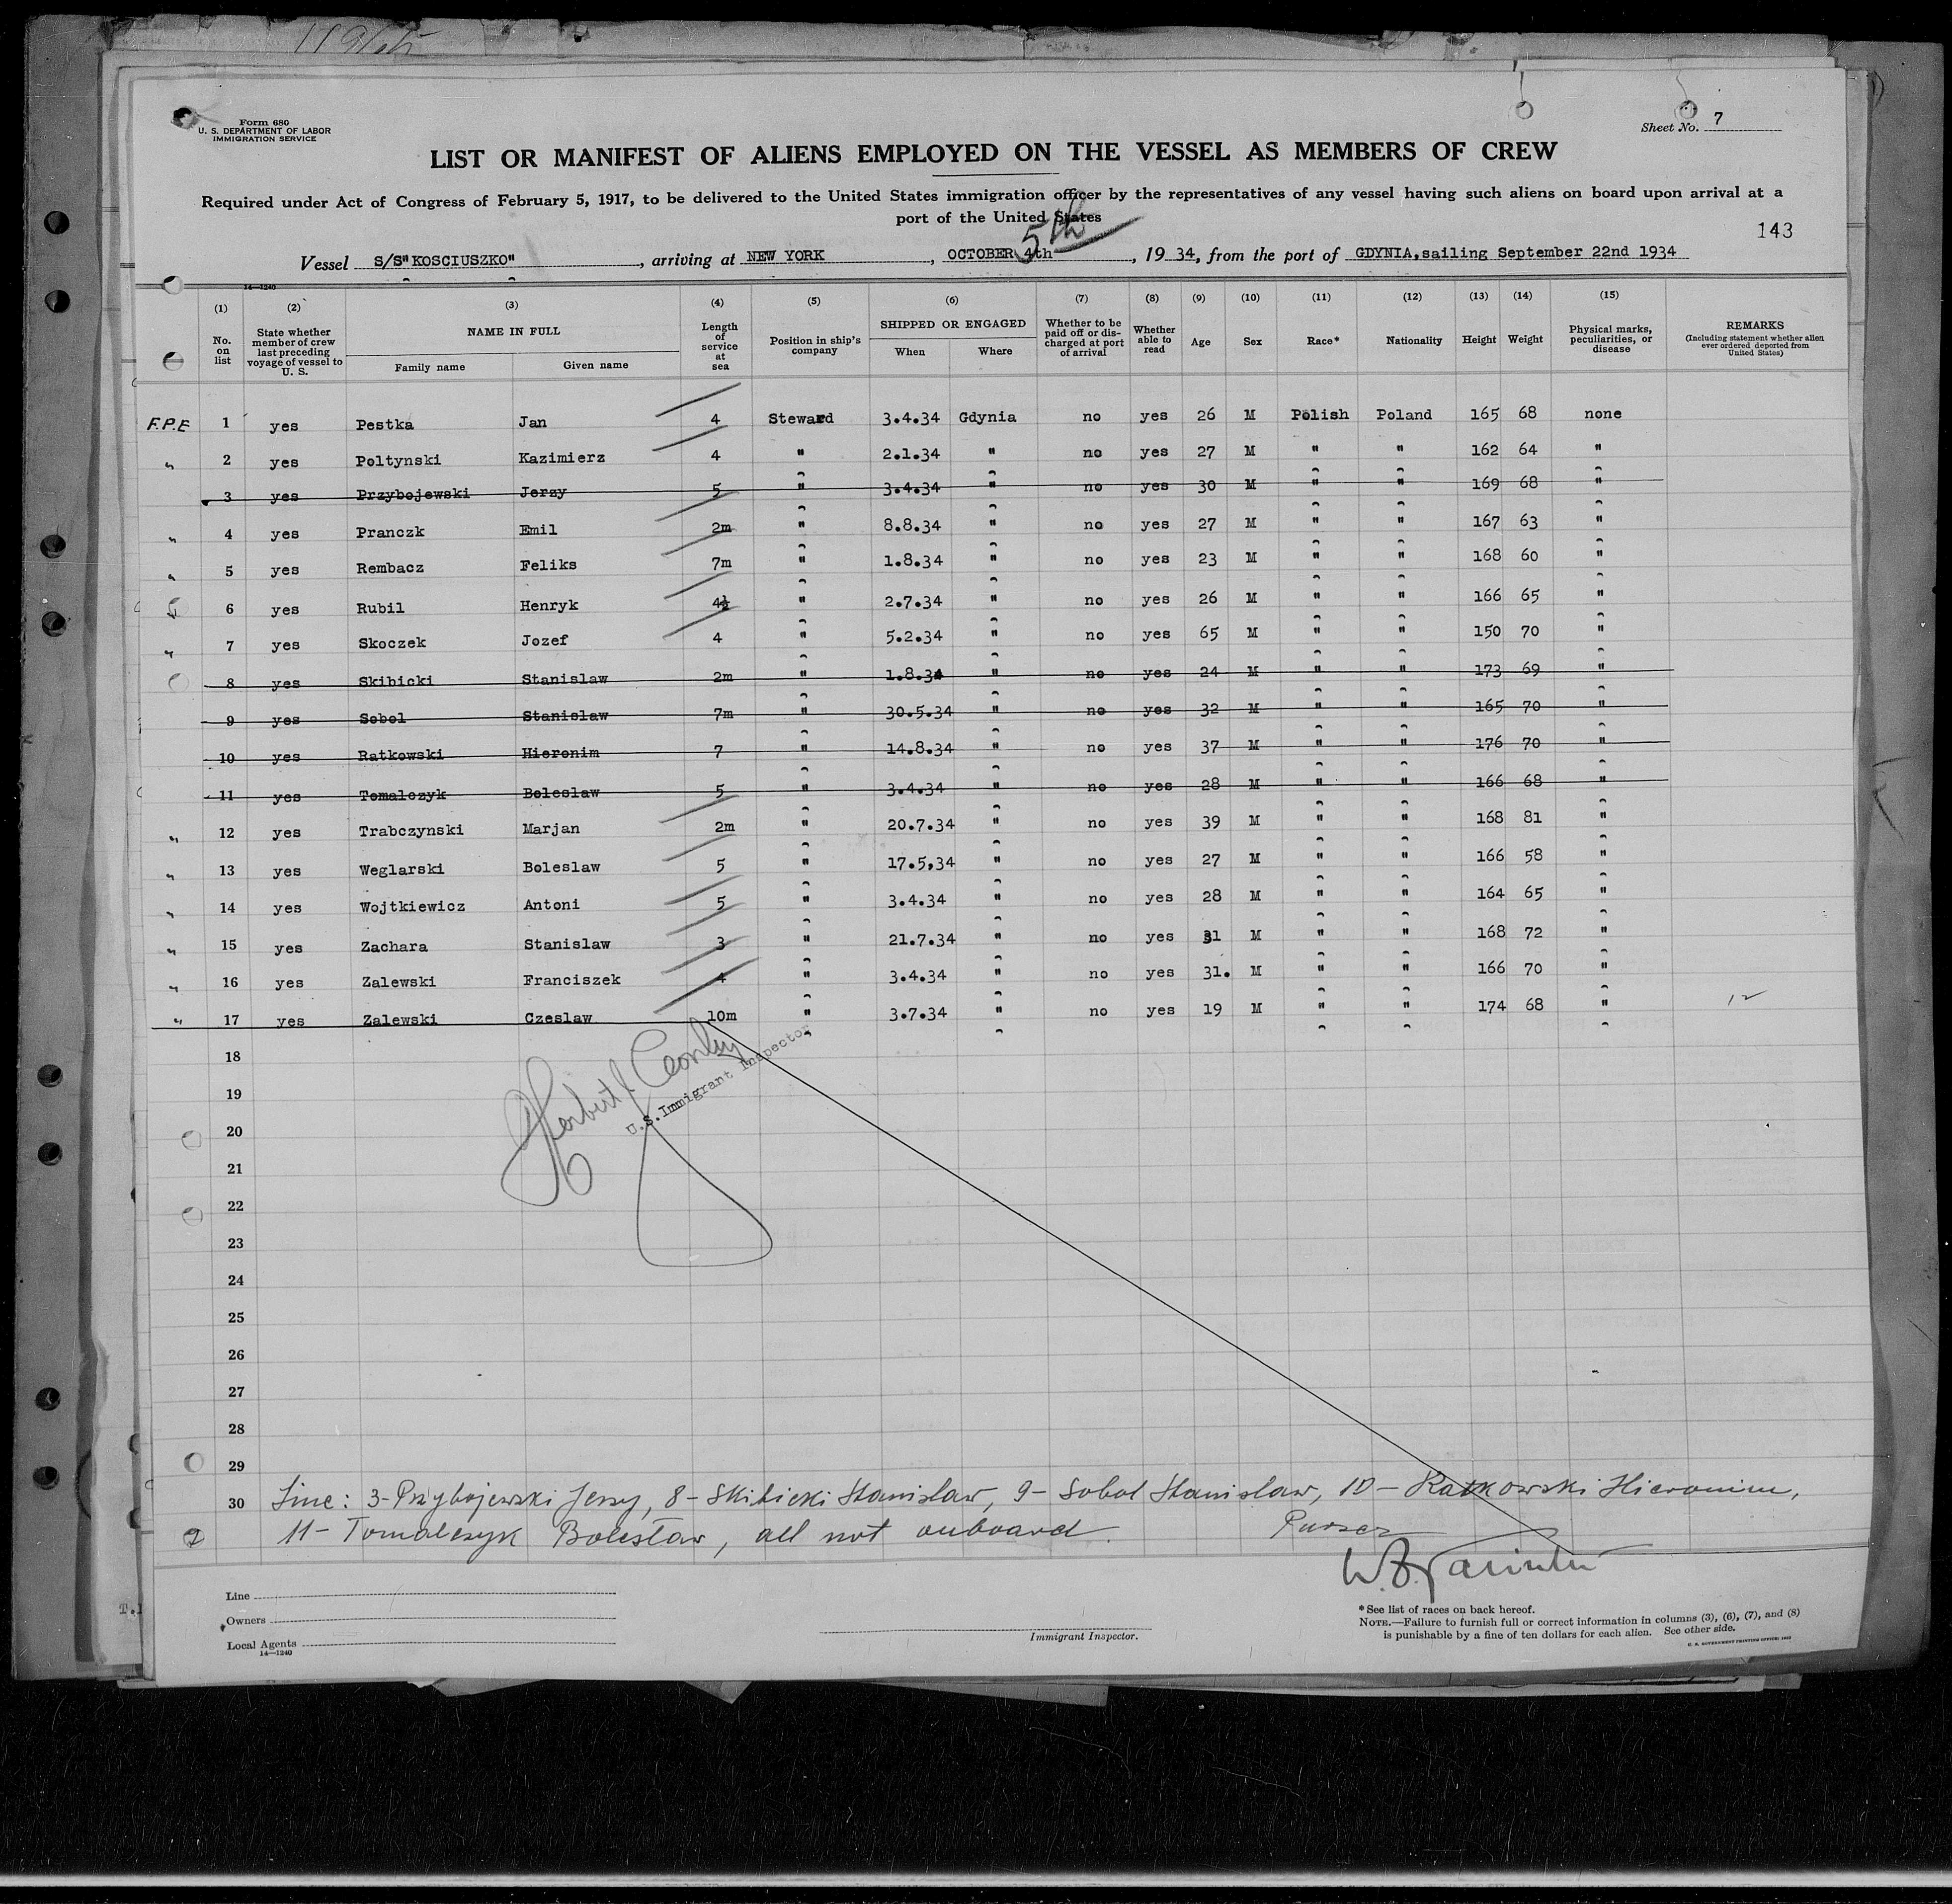 Form 680
U. S. DEPARTMENT OF LABOR
IMMIGRATION SERVICE
Sheet No. 7
LIST OR MANIFEST OF ALIENS EMPLOYED ON THE VESSEL AS MEMBERS OF CREW
Required under Act of Congress of February 5, 1917, to be delivered to the United States immigration officer by the representatives of any vessel having such aliens on board upon arrival at a
port of the United States
143
5th
Vessel S/S"KOSCIUSZKO", arriving at NEW YORK, OCTOBER 4th, 1934, from the port of GDYNIA, sailing September 22nd 1934
14—1240
(1) (2) (3) (4) (5) (6) (7) (8) (9) (10) (11) (12) (13) (14) (15)
No. on list
State whether member of crew last preceding voyage of vessel to U. S.
NAME IN FULL
Family name Given name
Length of service at sea
Position in ship's company
SHIPPED OR ENGAGED
When Where
Whether to be paid off or discharged at port of arrival
Whether able to read
Age
Sex
Race*
Nationality
Height
Weight
Physical marks, peculiarities, or disease
REMARKS
(Including statement whether alien ever ordered deported from United States)
F.P.E 1 yes Pestka Jan 4 Steward 3.4.34 Gdynia no yes 26 M Polish Poland 165 68 none
" 2 yes Poltynski Kazimierz 4 " 2.1.34 " no yes 27 M " " 162 64 "
3 yes Przybojewski Jerzy 5 " 3.4.34 " no yes 30 M " " 169 68 "
" 4 yes Pranczk Emil 2m " 8.8.34 " no yes 27 M " " 167 63 "
" 5 yes Rembacz Feliks 7m " 1.8.34 " no yes 23 M " " 168 60 "
" 6 yes Rubil Henryk 4½ " 2.7.34 " no yes 26 M " " 166 65 "
" 7 yes Skoczek Jozef 4 " 5.2.34 " no yes 65 M " " 150 70 "
8 yes Skibicki Stanislaw 2m " 1.8.34 " no yes 24 M " " 173 69 "
9 yes Sobol Stanislaw 7m " 30.5.34 " no yes 32 M " " 165 70 "
10 yes Ratkowski Hieronim 7 " 14.8.34 " no yes 37 M " " 176 70 "
11 yes Tomalczyk Boleslaw 5 " 3.4.34 " no yes 28 M " " 166 68 "
" 12 yes Trabczynski Marjan 2m " 20.7.34 " no yes 39 M " " 168 81 "
" 13 yes Weglarski Boleslaw 5 " 17.5,34 " no yes 27 M " " 166 58 "
" 14 yes Wojtkiewicz Antoni 5 " 3.4.34 " no yes 28 M " " 164 65 "
" 15 yes Zachara Stanislaw 3 " 21.7.34 " no yes 31 M " " 168 72 "
" 16 yes Zalewski Franciszek 4 " 3.4.34 " no yes 31. M " " 166 70 "
" 17 yes Zalewski Czeslaw 10m " 3.7.34 " no yes 19 M " " 174 68 " 12
18
U.S.Immigrant Inspector
19
20
21
22
23
24
25
26
27
28
29
30 Line: 3-Przybojewski Jerzy, 8- Skibicki Stanislaw, 9- Sobol Stanislaw, 10- Ratkowski Hieronim,
11- Tomalczyk Bolesław, all not onboard. Purser
Line
Owners
Local Agents
14—1240
Immigrant Inspector.
*See list of races on back hereof.
NOTE.—Failure to furnish full or correct information in columns (3), (6), (7), and (8)
is punishable by a fine of ten dollars for each alien. See other side.